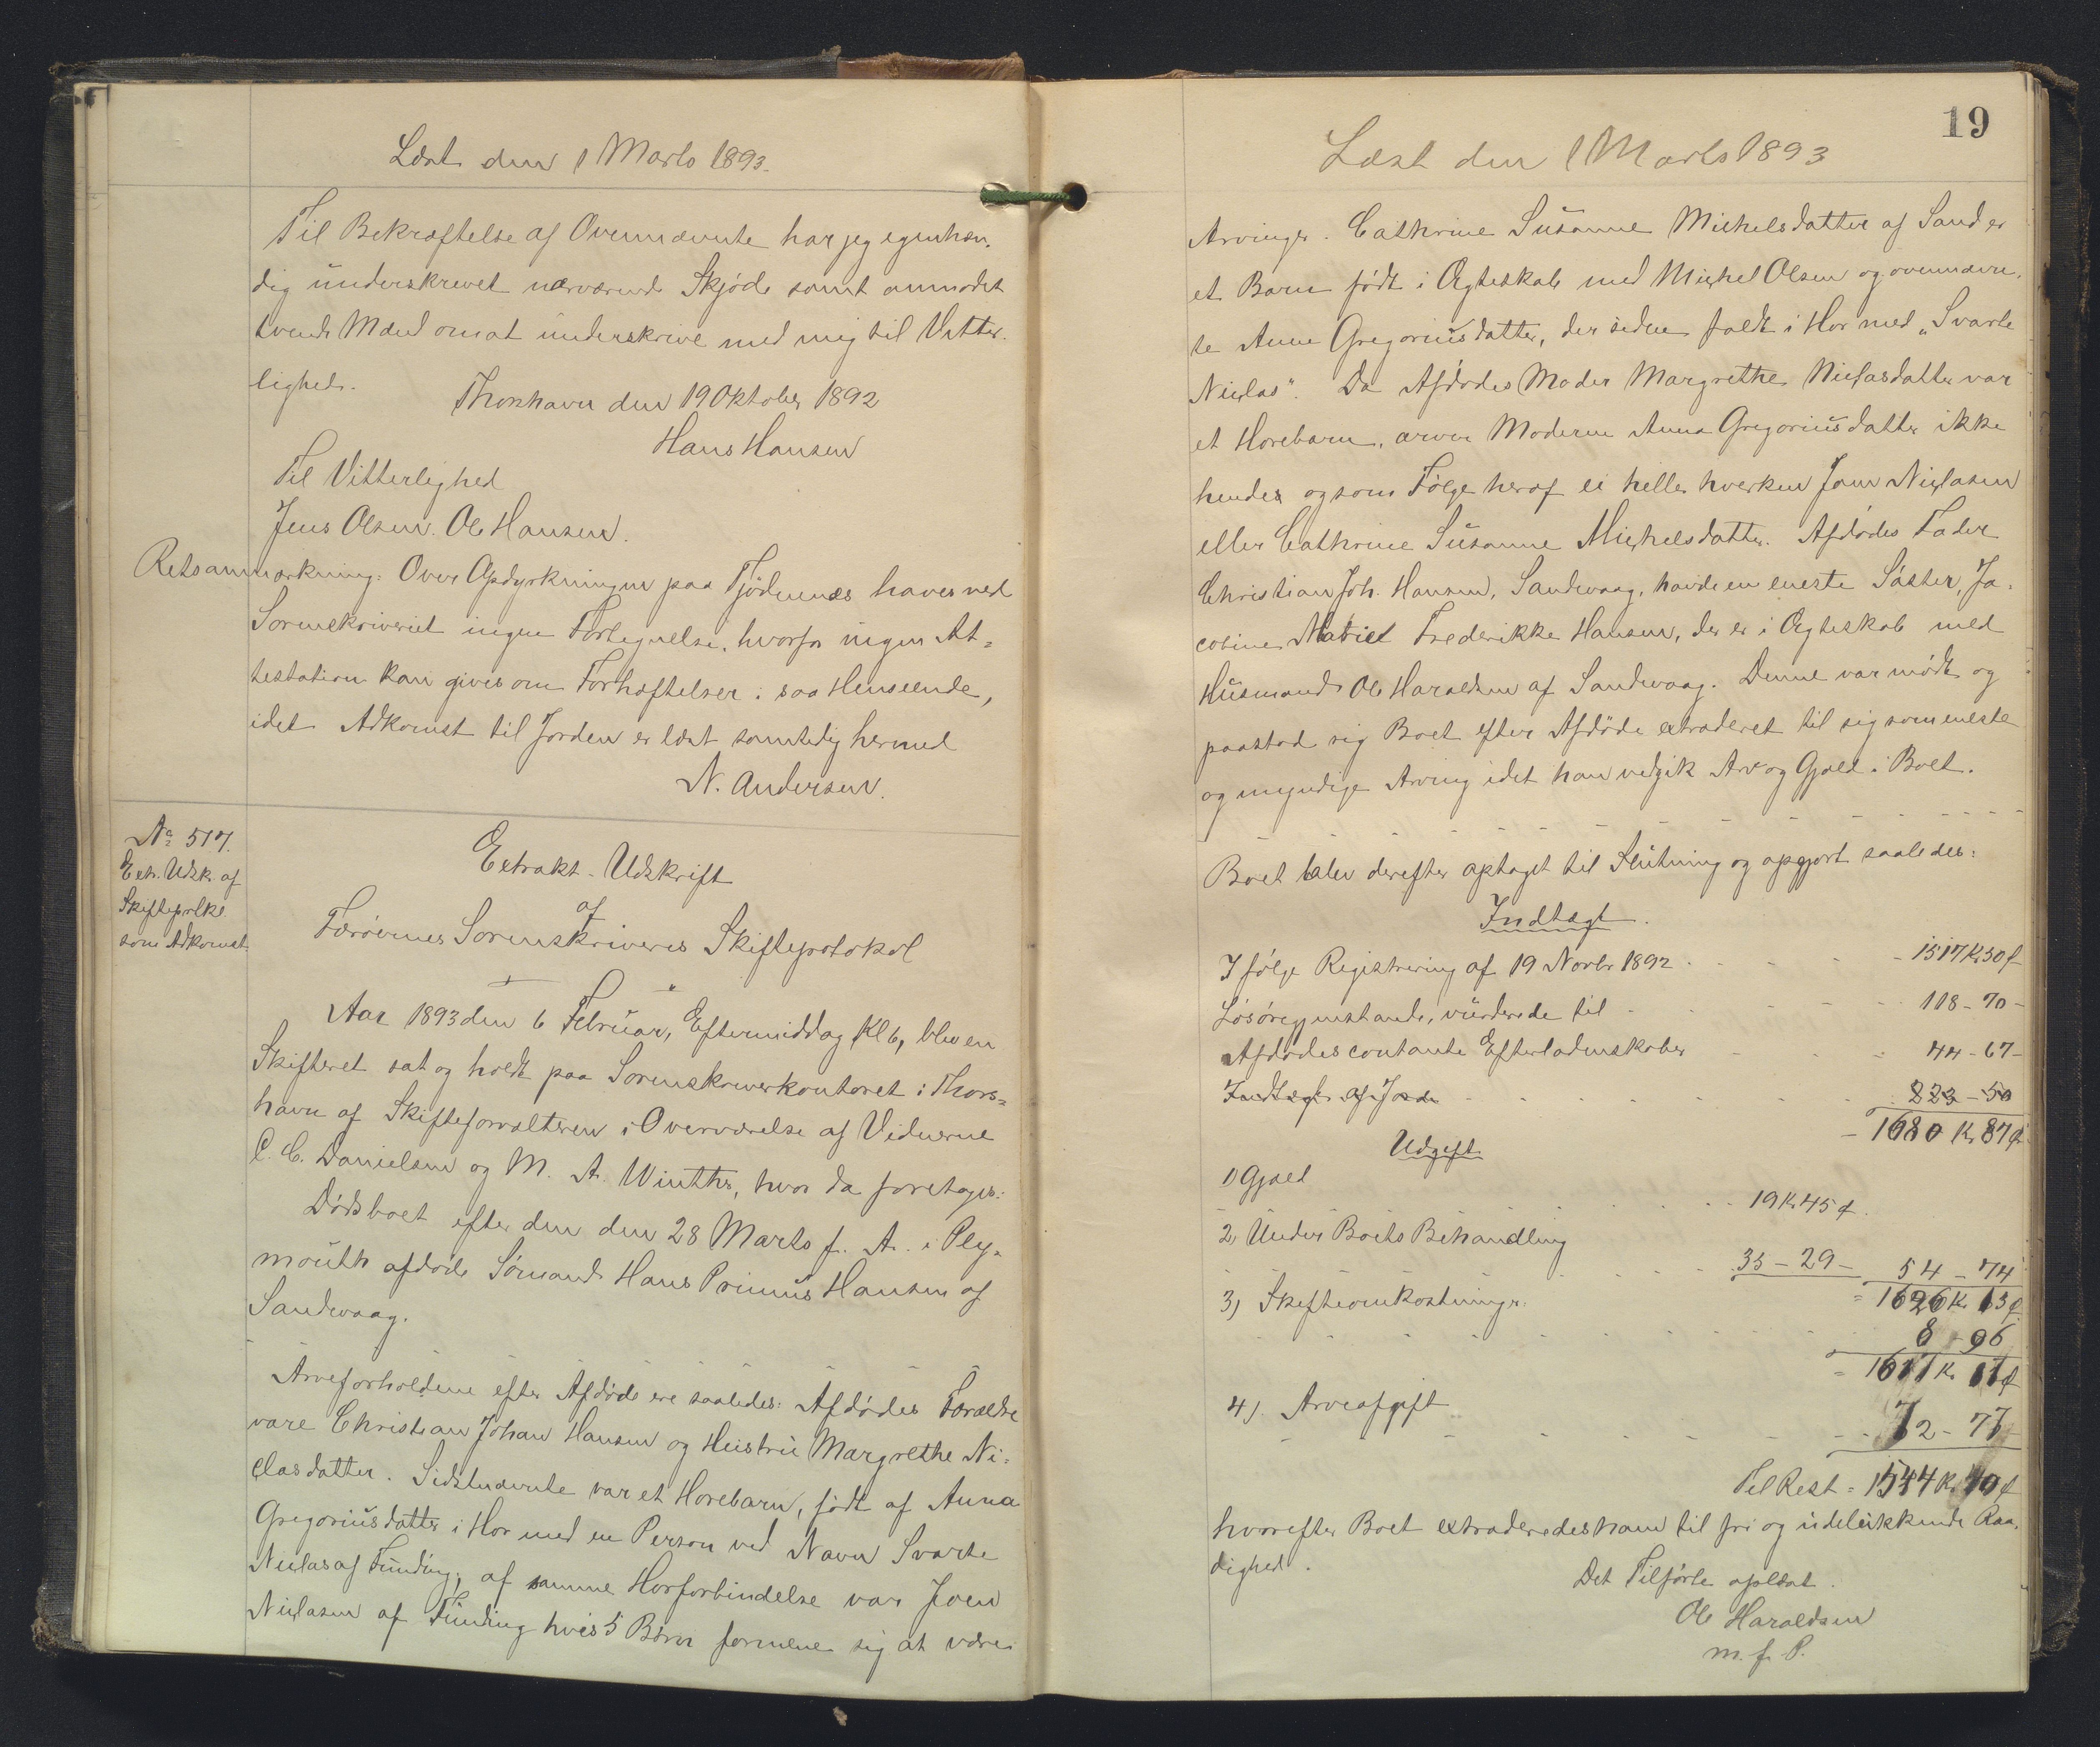 Læst den 1 Marts 1893.
Til Bekræftelse af Ovennævnte har jeg egenhæn-
dig underskrevet nærværende Skjøde samt anmodet
tvende Mænd om at underskrive med mig til Vitter-
lighed.
Thorshavn den 19 Oktober 1892
Hans Hansen
Til Vitterlighed
Jens Olsen. Ole Hansen.
Retsanmærkning: Over Opdyrkningen paa Tjødenæs haves ved
Sorenskriveriet ingen Fortegnelse, hvorfor ingen At-
testation kan gives om Forhæftelser i saa Henseende,
idet Adkomst til Jorden er læst samtidig hermed
N. Andersen.
No 517.
Extr. Udsk. af
Skifteprotkl.
som Adkomst.
Extrakt-Udskrift
af
Færøernes Sorenskriveries Skifteprotokol
Aar 1893 den 6 Februar, Eftermiddag Kl 6, blev en
Skifteret sat og holdt paa Sorenskriverkontoret i Thors-
havn af Skifteforvalteren i Overværelse af Vidnerne
C. C. Danielsen og M. A. Winther, hvor da foretages:
Dødsboet efter den den 28 Marts f. A. i Ply-
mouth afdøde Sømand Hans Primus Hansen af
Sandvaag.
Arveforholdene efter Afdøde ere saaledes: Afdødes Forældre
vare Christian Johan Hansen og Hustru Margrethe Ni-
clasdatter. Sidstnævnte var et Horebarn, født af Anna
Gregoriusdatter i Hor med en Person ved Navn Svarte
Niclas af Funding; af samme Horforbindelse var Joen
Niclasen af Funding hvis 5 Børn formene sig at være
19
Læst den 1 Marts 1893
Arvinger. Cathrine Susanne Michelsdatter af Sand er
et Barn født i Ægteskab med Michel Olsen og ovennævn-
te Anne Gregoriusdatter, der siden faldt i Hor med „Svarte
Niclas". Da Afdødes Moder Margrethe Niclasdatter var
et Horebarn, arver Moderen Anna Gregoriusdatter ikke
hendes og som Følge heraf ei heller hverken Joen Niclasen
eller Cathrine Susanne Michelsdatter. Afdødes Fader
Christian Joh. Hansen, Sandvaag, havde en eneste Søster, Ja-
cobine Frederikke Hansen, der er i Ægteskab med
Husmand Ole Haraldsen af Sandvaag. Denne var mødt og
paastod sig Boet efter Afdøde extraderet til sig som eneste
og myndige Arving idet han vedgik Arv og Gjæld i Boet.
Boet blev derefter optaget til Slutning og opgjort saaledes:
Indtægt.
Ifølge Registrering af 19 Novbr 1892 1517 Kr 50 ø
Løsøregjenstande, vurderede til 118 - 70 -
Afdødes contante Efterladenskaber 44 - 67 -
Indtægt af Jorden 223 - 50
1680 Kr 87 ø
Udgift
1) Gjæld 19 Kr 45 ø.
2) Under Boets Behandling 35 - 29 - 54 - 74
1626 Kr 13 ø
3) Skifteomkostninger.
8 - 96
1617 Kr 17 ø
4). Arveafgift
72 - 77
Til Rest = 1544 Kr 40 ø
hvorefter Boet extraderedes ham til fri og udelukkende Raa-
dighed.
Det Tilførte oplæst.
Ole Haraldsen
m. f. P.